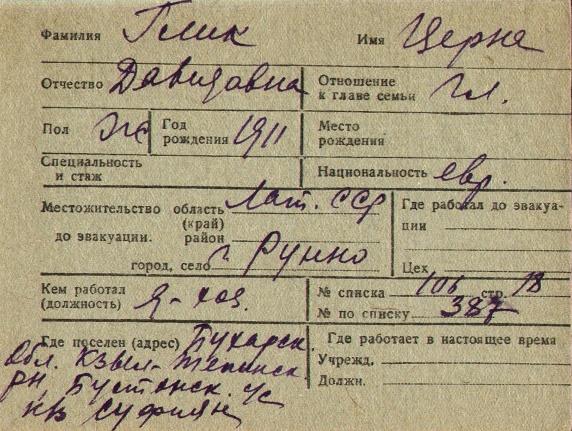 Фамилия Глик Имя Церна
Отчество Давидовна Отношение к главе семьи Гл.
Пол Ж Год рождения 1911 Место рождения
Специальность и стаж Национальность евр.
Местожительство до эвакуации. область (край) Лат. ССР
район
город, село г. Рунно
Где работал до эвакуации
Цех
Кем работал (должность) Д-хоз.
№ списка 106 стр. 18
№ по списку 387
Где поселен (адрес) Бухарск.
Обл. Кзыл-Тепинск
рн, Бустонск. с/с
к-з Суфиян
Где работает в настоящее время
Учрежд.
Должн.